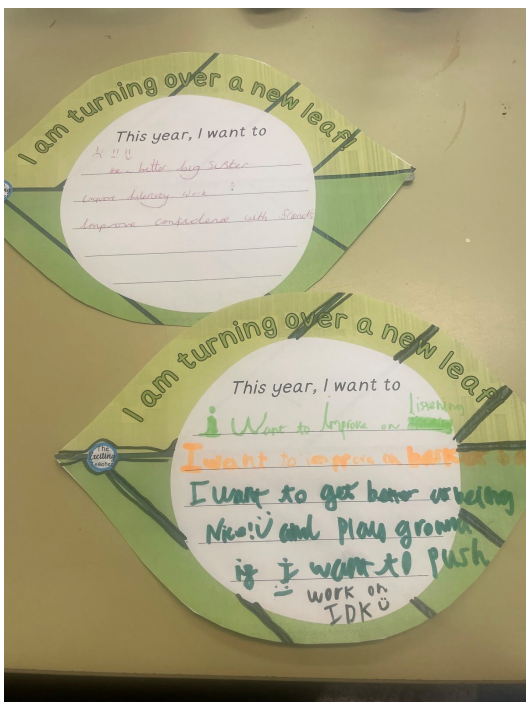 I am turning over a new leaf!
This year, I want to
be a better big sister
improve work
Improve confidence with
I am turning over a new leaf!
This year, I want to
i Want to Improve on listening
I want to improve on
I want to get better at being
Nice! and Play ground
I want to push
work on
IDK
The
exciting
teacher